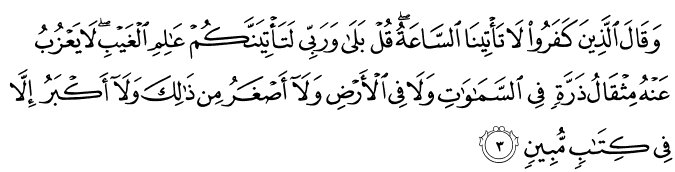 وَقَالَ ٱلَّذِينَ كَفَرُوا۟ لَا تَأْتِينَا ٱلسَّاعَةُ ۖ قُلْ بَلَىٰ وَرَبِّى لَتَأْتِيَنَّكُمْ عَـٰلِمِ ٱلْغَيْبِ ۖ لَا يَعْزُبُ
عَنْهُ مِثْقَالُ ذَرَّةٍ فِى ٱلسَّمَـٰوَٰتِ وَلَا فِى ٱلْأَرْضِ وَلَآ أَصْغَرُ مِن ذَٰلِكَ وَلَآ أَكْبَرُ إِلَّا
فِى كِتَـٰبٍ مُّبِينٍ ٣